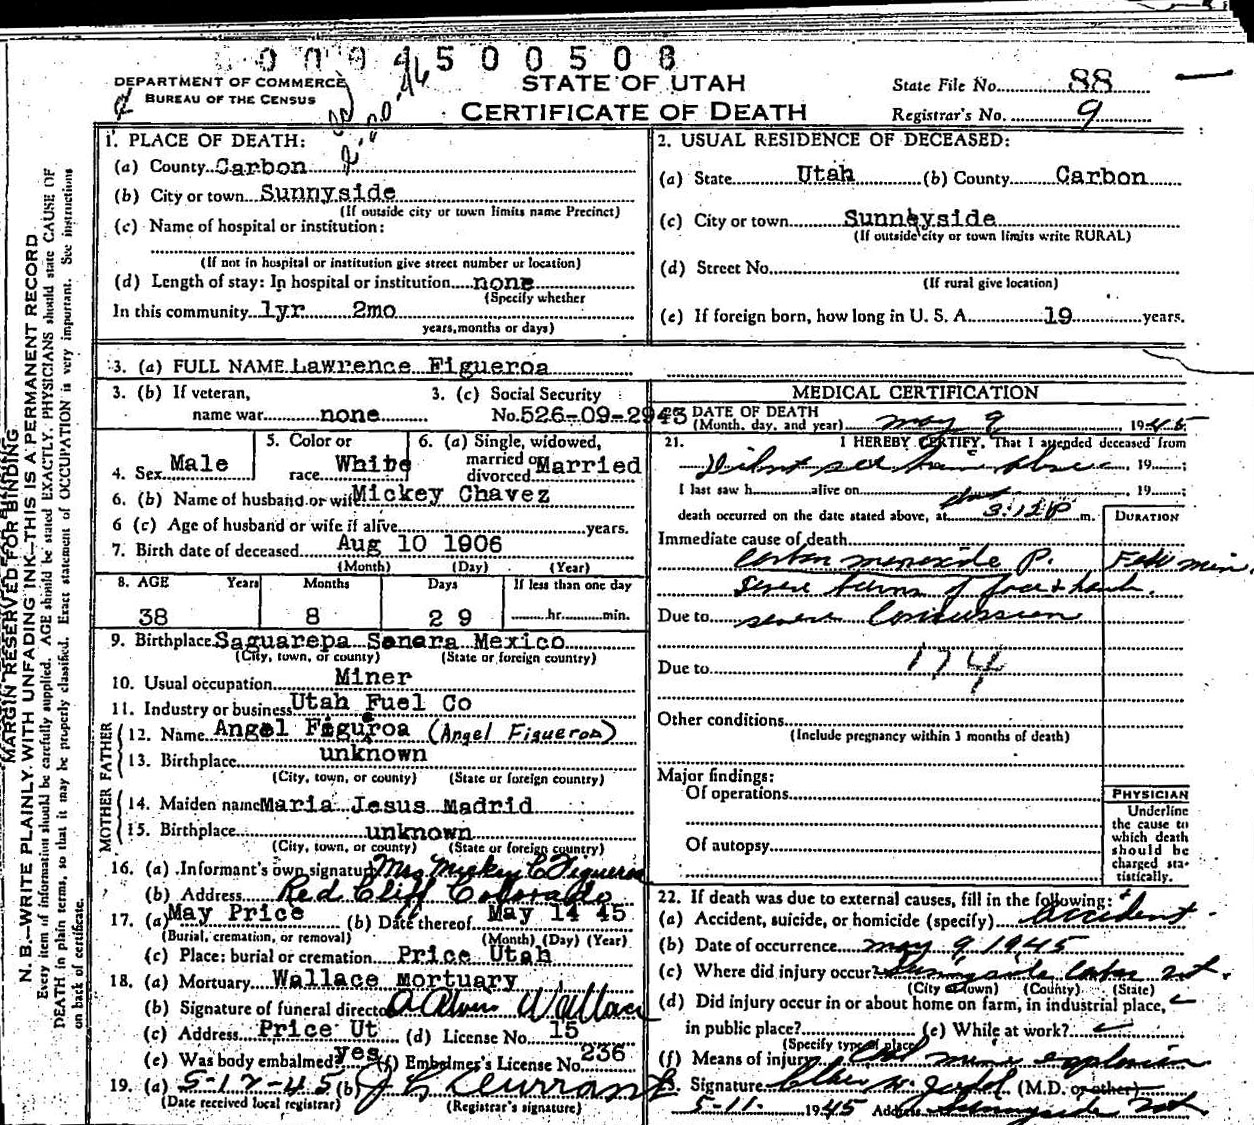 0094500508
DEPARTMENT OF COMMERCE
BUREAU OF THE CENSUS
STATE OF UTAH
CERTIFICATE OF DEATH
State File No. 88
Registrar's No. 9
MARGIN RESERVED FOR BINDING
N. B.—WRITE PLAINLY, WITH UNFADING INK—THIS IS A PERMANENT RECORD
Every item of information should be carefully supplied. AGE should be stated EXACTLY. PHYSICIANS should state CAUSE OF
DEATH in plain terms, so that it may be properly classified. Exact statement of OCCUPATION is very important. See instructions
on back of certificate.
1. PLACE OF DEATH:
(a) County Carbon
(b) City or town Sunnyside
(If outside city or town limits name Precinct)
(c) Name of hospital or institution:
(If not in hospital or institution give street number or location)
(d) Length of stay: In hospital or institution none
(Specify whether
In this community 1yr 2mo
years, months or days)
2. USUAL RESIDENCE OF DECEASED:
(a) State Utah (b) County Carbon
(c) City or town Sunnyside
(If outside city or town limits write RURAL)
(d) Street No.
(If rural give location)
(e) If foreign born, how long in U. S. A. 19 years.
3. (a) FULL NAME Lawrence Figueroa
3. (b) If veteran, name war none
3. (c) Social Security No. 526-09-2943
4. Sex Male
5. Color or race White
6. (a) Single, widowed, married or divorced Married
6. (b) Name of husband or wife Mickey Chavez
6 (c) Age of husband or wife if alive years.
7. Birth date of deceased Aug 10 1906
(Month) (Day) (Year)
8. AGE Years Months Days If less than one day
38 8 29 hr. min.
9. Birthplace Saguarepa Senara Mexico
(City, town, or county) (State or foreign country)
10. Usual occupation Miner
11. Industry or business Utah Fuel Co
FATHER
12. Name Angel Figuroa (Angel Figueroa)
13. Birthplace unknown
(City, town, or county) (State or foreign country)
MOTHER
14. Maiden name Maria Jesus Madrid
15. Birthplace unknown
(City, town, or county) (State or foreign country)
16. (a) Informant's own signature Mrs Mickey C Figueroa
(b) Address Red Cliff Colorado
17. (a) May Price (b) Date thereof May 14 45
(Burial, cremation, or removal) (Month) (Day) (Year)
(c) Place: burial or cremation Price Utah
18. (a) Mortuary Wallace mortuary
(b) Signature of funeral director Wallace
(c) Address Price Ut (d) License No. 15
(e) Was body embalmed yes (f) Embalmer's License No. 236
19. (a) 5-12-45 (b)
(Date received local registrar) (Registrar's signature)
MEDICAL CERTIFICATION
DATE OF DEATH
(Month, day, and year) may 9, 1945
21. I HEREBY CERTIFY, That I attended deceased from
Did not see him alive, 19 ;
I last saw h alive on , 19 ;
death occurred on the date stated above, at about 3:12 P m.
DURATION
Immediate cause of death
carbon monoxide P. Few min.
severe burns of face & hands.
Due to severe Concussion
174
Due to
Other conditions
(Include pregnancy within 3 months of death)
Major findings:
Of operations
Of autopsy
PHYSICIAN
Underline
the cause to
which death
should be
charged sta-
tistically.
22. If death was due to external causes, fill in the following:
(a) Accident, suicide, or homicide (specify) Accident
(b) Date of occurrence may 9, 1945
(c) Where did injury occur? Sunnyside Carbon Ut.
(City or Town) (County) (State)
(d) Did injury occur in or about home on farm, in industrial place, ✓
in public place? (e) While at work? ✓
(Specify type of place)
(f) Means of injury Coal mine explosion
Signature (M.D. or other)
5-11- 1945 Address Sunnyside Ut